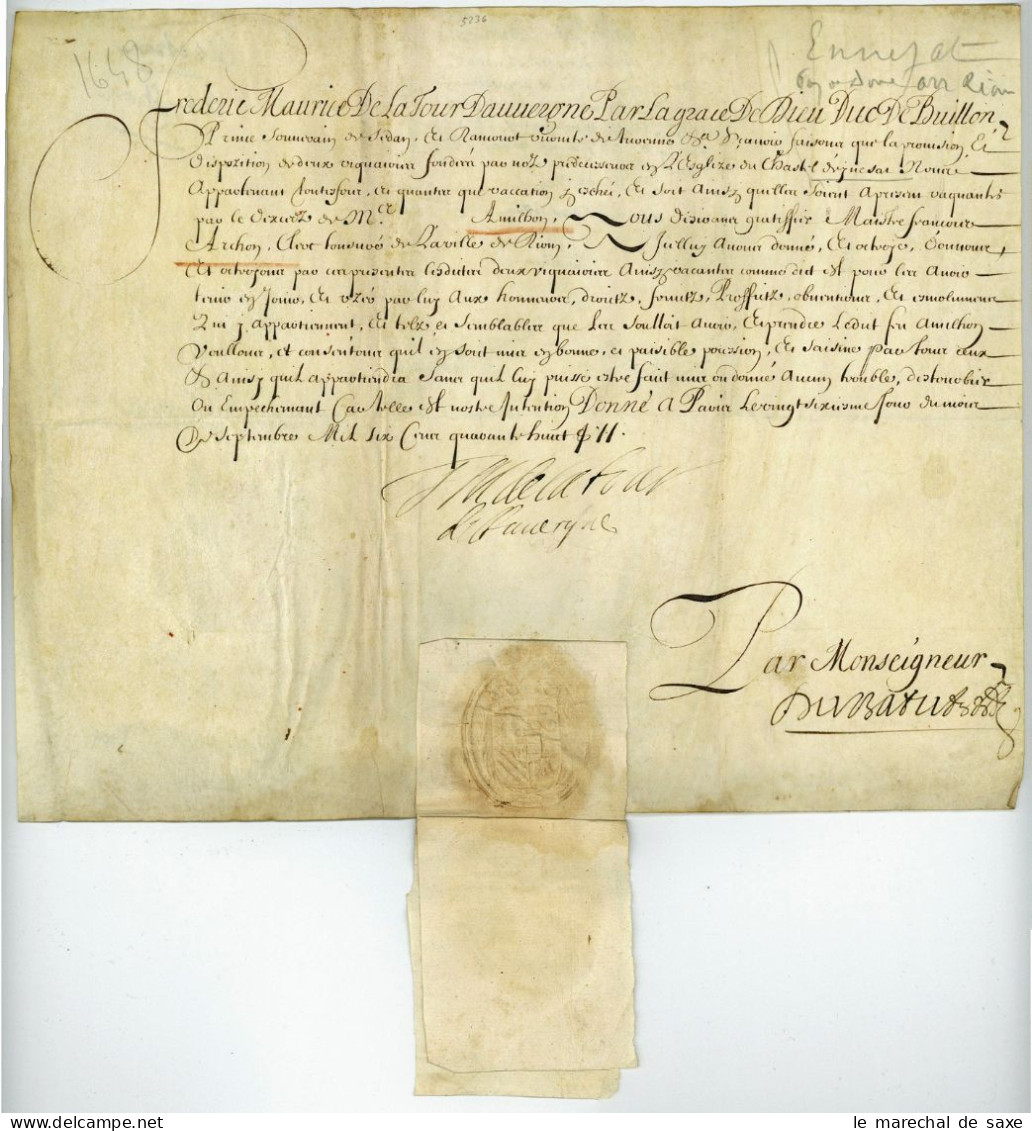 5236
1648
Ennezat
Puy de Dome arr Riom
Frederic Maurice De La Tour Dauuergne Par La grace De Dieu Duc De Buillon
Prince Souuerain de Sedan, Et Raucourt Vicomte de Turenne &a Scauoir faisons que la prouision, Et
Disposition de deux viquairies fondées par noz predecesseurs en L'Eglize du Chastel
Appartenant et quantes que vaccation y eschet, et soit Ainsy quelles soient A present vaquantes
par le decedz de Mer Amilhon, Nous desirans gratiffier Maistre francois
Archon, Clerc tonsuré de La ville de Riom, A Icelluy Auons donné, et octroyé, donnons,
Et octroyons par ces presentes lesdites deux viquairies Ainsy vacantes comme dict est pour les Auoir
tenir en Jouir, et vzer par luy Aux honneurs, droictz, fruictz, Proffictz, obuentions, et esmolumens
Qui y Appartiennent, et telz et semblables que les soulloit Auoir, et prendre Ledit feu Amilhon
Voullons, et consentons quil en soit mis en bonne, et paisible possession, et saisine par tous ceux
& Ainsy quil appartiendra Sans quil luy puisse estre fait mis ou donné Aucun trouble, destourbier
Ou Empechement Car telle est nostre Intention Donné A Paris Le vingt sixiesme Jour du mois
De Septembre Mil six Cens quarante huict
F M de la tour
d'auuergne
Par Monseigneur
le marechal de saxe